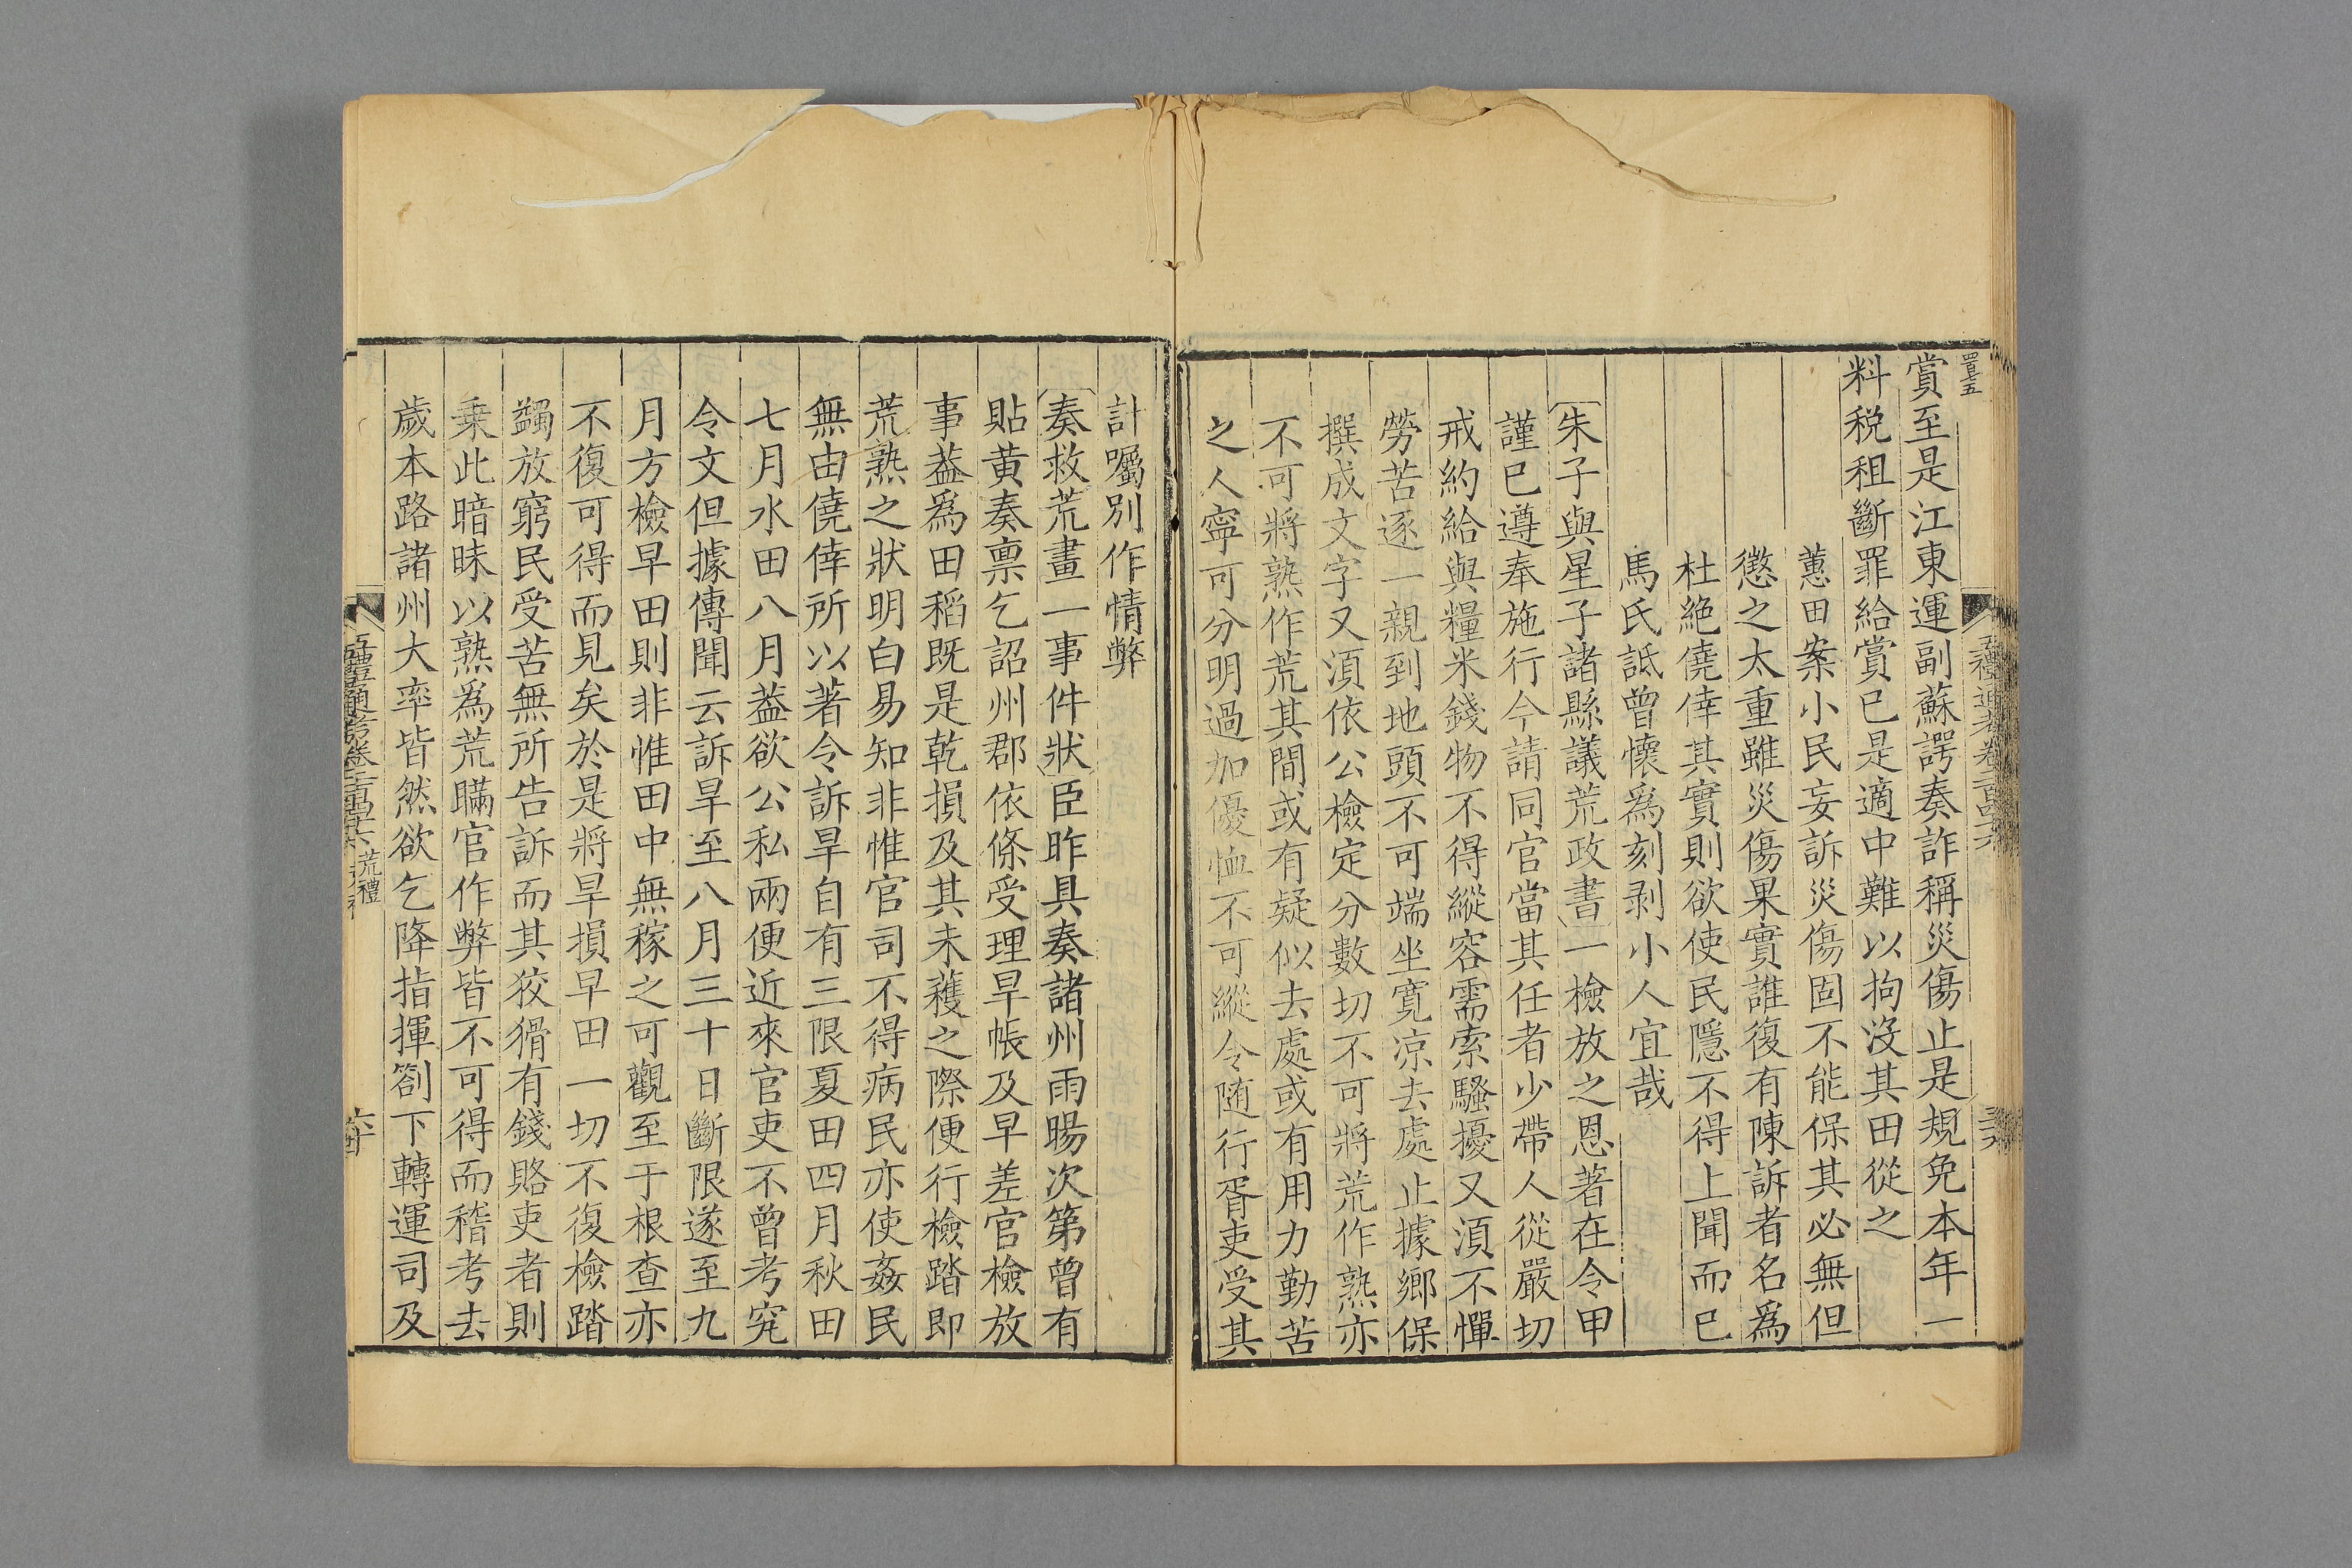 賞至是江東運副蘇諤奏詐稱災傷止是規免本年一
料税租斷罪給賞已是適中難以拘沒其田從之
蕙田案小民妄訴災傷固不能保其必無但
懲之太重雖災傷果實誰復有陳訴者名爲
杜絶僥倖其實則欲使民隱不得上聞而巳
馬氏詆曾懷爲刻剥小人宜哉
朱子與星子諸縣議荒政書一檢放之恩著在令甲
謹巳遵奉施行今請同官當其任者少帶人從嚴切
戒約給與糧米錢物不得縱容需索騷擾又湏不憚
勞苦逐一親到地頭不可端坐寛凉去處止據鄉保
撰成文字又湏依公檢定分數切不可將荒作熟亦
不可將熟作荒其間或有疑似去處或有用力勤苦
之人寧可分明過加優恤不可縱令随行胥吏受其
計囑別作情弊
奏救荒畫一事件狀臣昨具奏諸州雨暘次第曾有
貼黄奏禀乞詔州郡依條受理旱帳及早差官檢放
事葢爲田稻既是乾損及其未穫之際便行檢踏即
荒熟之狀明白易知非惟官司不得病民亦使姦民
無由僥倖所以著令訴旱自有三限夏田四月秋田
七月水田八月葢欲公私兩便近來官吏不曾考究
令文但據傳聞云訴旱至八月三十日斷限遂至九
月方檢早田則非惟田中無稼之可觀至于根查亦
不復可得而見矣於是將旱損早田一切不復檢踏
蠲放窮民受苦無所告訴而其狡猾有錢賂吏者則
乗此暗昧以熟爲荒瞞官作弊皆不可得而稽考去
歲本路諸州大率皆然欲乞降指揮劄下轉運司及
五禮通考卷二百四十六 荒禮